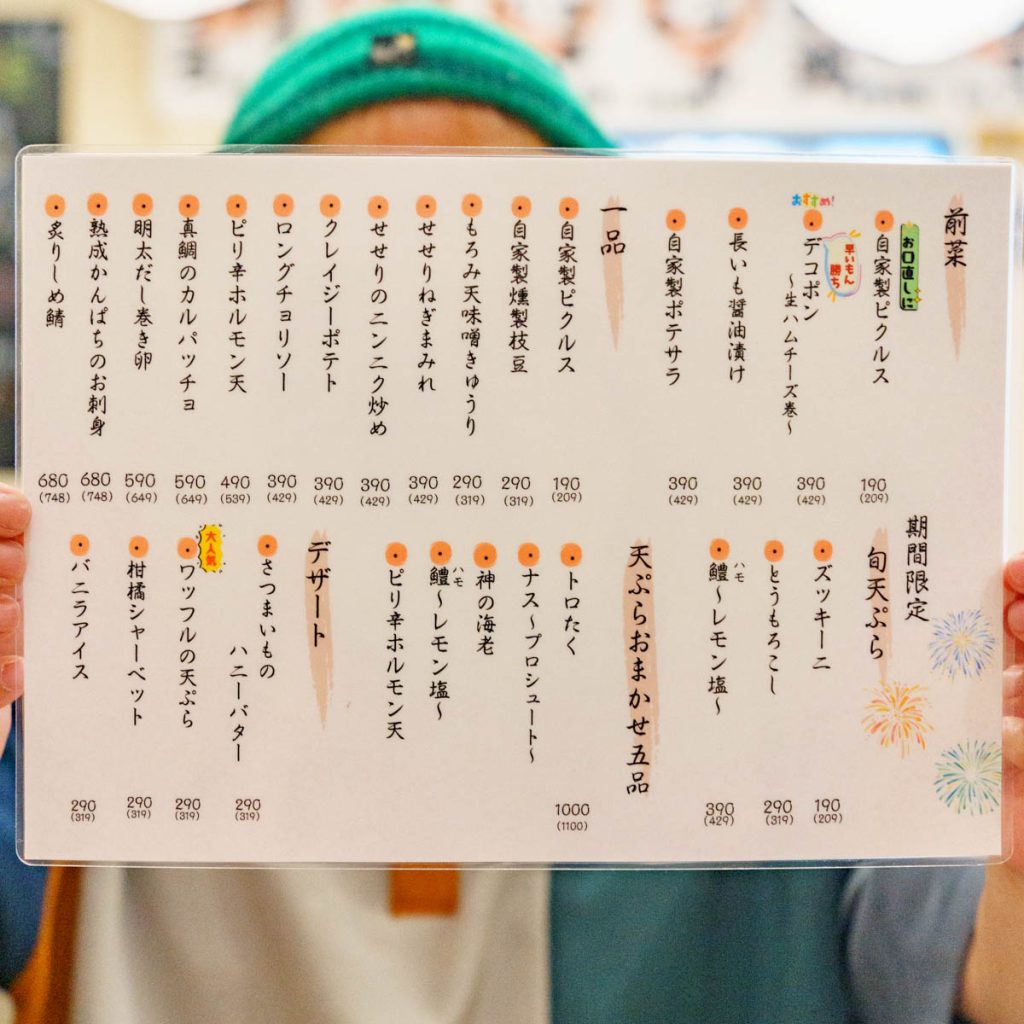 前菜
お口直しに
自家製ピクルス
190
(209)
おすすめ!
早いもん
勝ち
デコポン
〜生ハムチーズ巻〜
390
(429)
長いも醤油漬け
390
(429)
自家製ポテサラ
390
(429)
一品
自家製ピクルス
190
(209)
自家製燻製枝豆
290
(319)
もろみ天味噌きゅうり
290
(319)
せせりねぎまみれ
390
(429)
せせりのニンニク炒め
390
(429)
クレイジーポテト
390
(429)
ロングチョリソー
390
(429)
ピリ辛ホルモン天
490
(539)
真鯛のカルパッチョ
590
(649)
明太だし巻き卵
590
(649)
熟成かんぱちのお刺身
680
(748)
炙りしめ鯖
680
(748)
期間限定
旬天ぷら
ズッキーニ
190
(209)
とうもろこし
290
(319)
ハモ
鱧〜レモン塩〜
390
(429)
天ぷらおまかせ五品
1000
(1100)
トロたく
ナス〜プロシュート〜
神の海老
ハモ
鱧〜レモン塩〜
ピリ辛ホルモン天
デザート
さつまいもの
ハニーバター
290
(319)
大人気
ワッフルの天ぷら
290
(319)
柑橘シャーベット
290
(319)
バニラアイス
290
(319)